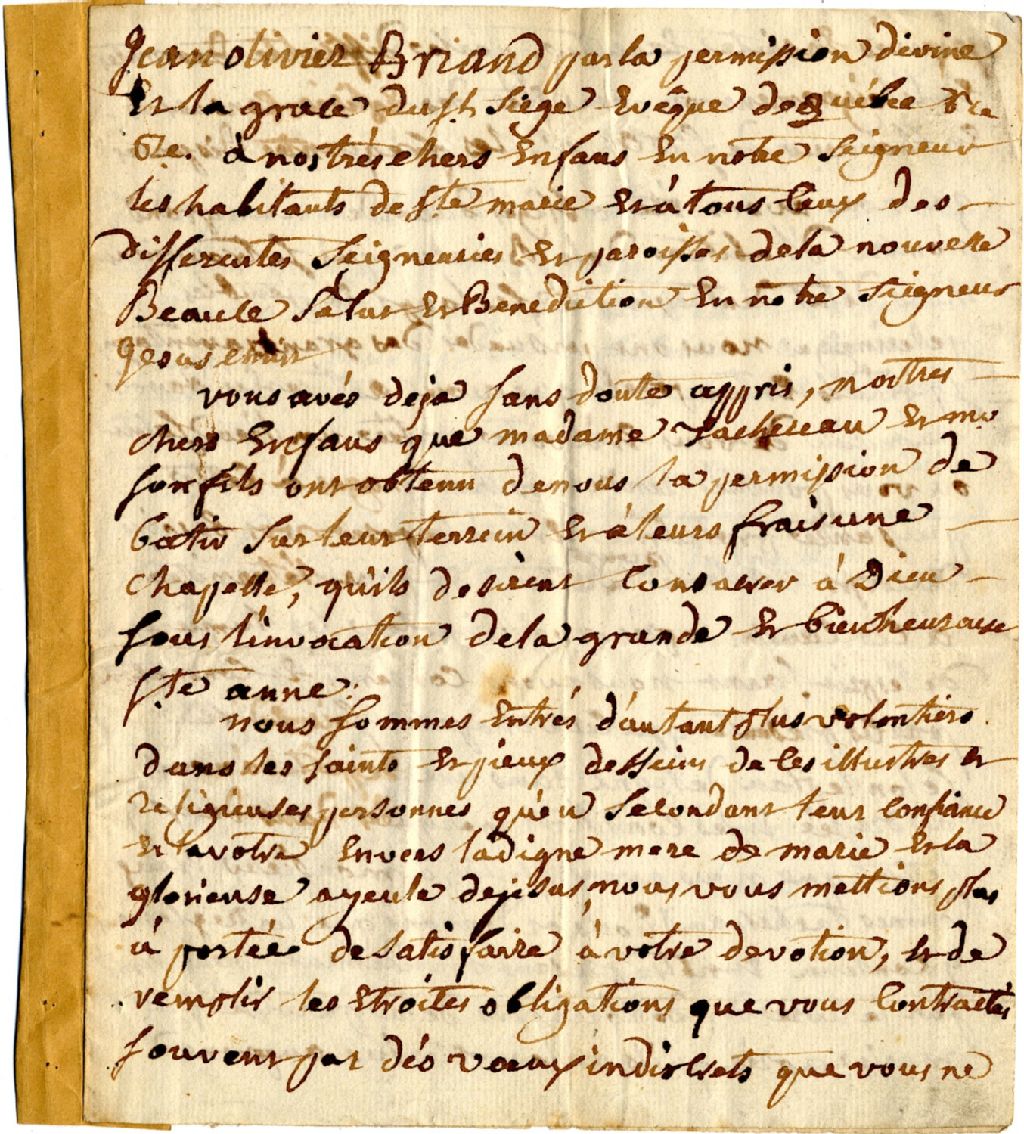 Jean olivier Briand par la permission divine
Et la grace du st Siége Evêque de québec &c
&c. à nos trés chers Enfans En notre Seigneur
les habitants de ste marie Et à tous ceux des
differentes Seigneuries Et paroisses de la nouvelle
Beauce Salut Et Benediction En notre Seigneur
Jesus christ
vous avés deja sans doute appris, nos trés
chers Enfans que madame Tachereau Et mr
son fils ont obtenu de nous la permission de
bâtir sur leur terrein Et à leurs frais une
chapelle, qu'ils desirent consacrer à Dieu
sous l'invocation de la grande Et bienheureuse
ste anne.
nous sommes Entrés d'autant plus volontiers
dans les saints Et pieux desseins de ces illustres Et
religieuses personnes qu'en secondant leur confiance
Et la votre Envers la digne mere de marie Et la
glorieuse ayeule de jesus, nous vous mettions plus
à portée de satisfaire à votre devotion, Et de
remplir les Etroites obligations que vous contractés
souvent par dés voeux indiscrets que vous ne